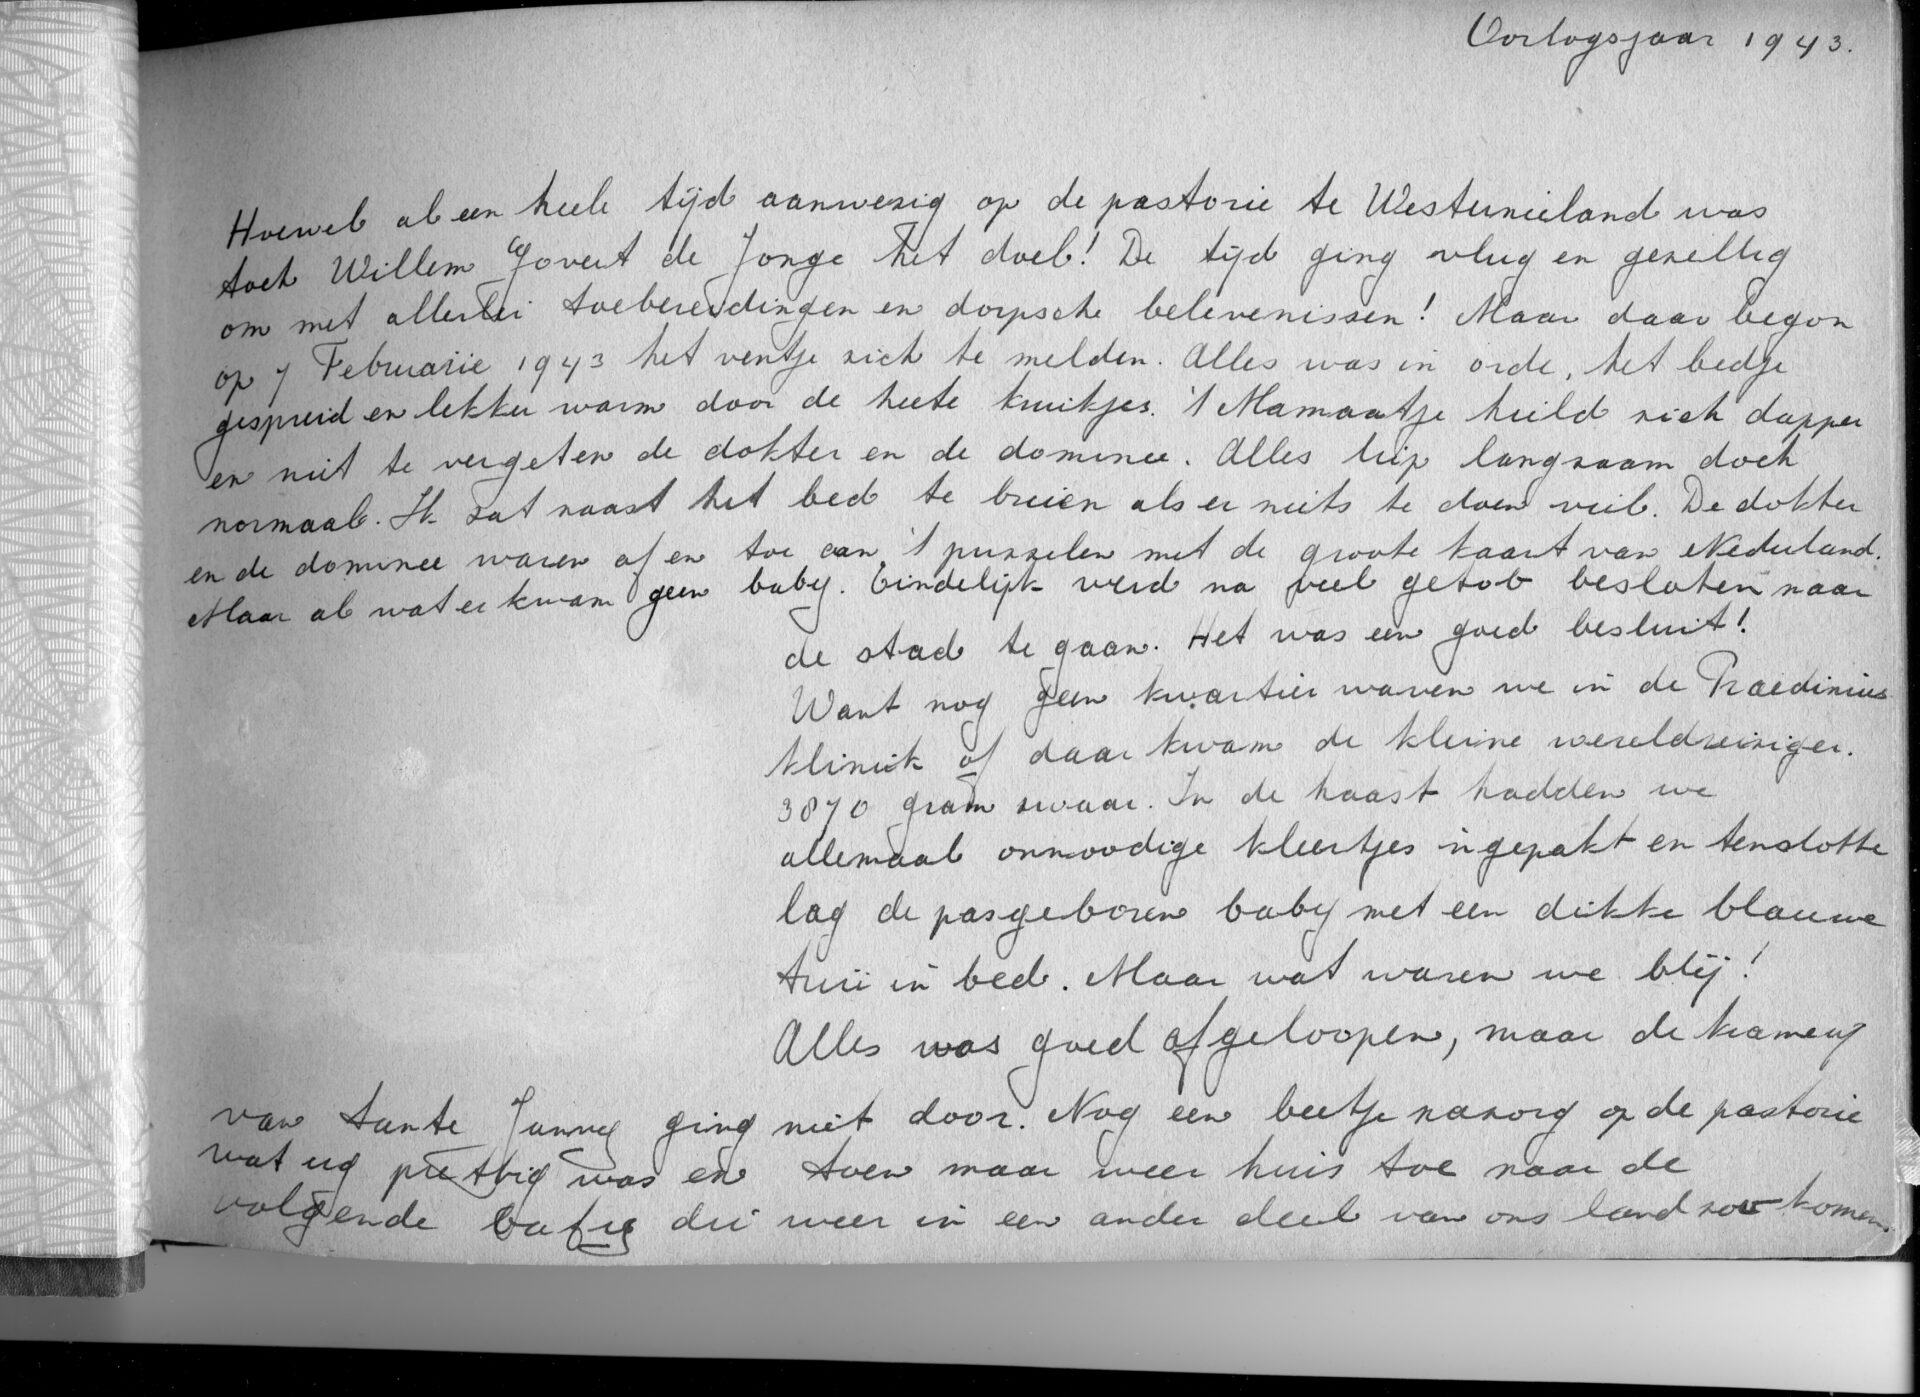 Oorlogsjaar 1943.
Hoewel al een heele tijd aanwezig op de pastorie te Westernieland was
toch Willem Govert de Jonge het doel! De tijd ging vlug en gezellig
om met allerlei toebereidingen en dorpsche belevenissen! Maar daar begon
op 7 Februarie 1943 het ventje zich te melden. Alles was in orde, het bedje
gespreid en lekker warm door de heete kruikjes. 't Mamaatje hield zich dapper
en niet te vergeten de dokter en de dominee. Alles liep langzaam doch
normaal. Ik zat naast het bed te breien als er niets te doen viel. De dokter
en de dominee waren af en toe aan 't puzzelen met de groote kaart van Nederland.
Maar al wat er kwam geen baby. Eindelijk werd na veel getob besloten naar
de stad te gaan. Het was een goed besluit!
Want nog geen kwartier waren we in de Praedinius
kliniek of daar kwam de kleine wereldreiziger.
3870 gram zwaar. In de haast hadden we
allemaal onnoodige kleertjes ingepakt en tenslotte
lag de pasgeboren baby met een dikke blauwe
trui in bed. Maar wat waren we blij!
Alles was goed afgeloopen, maar de kramerij
van tante Janny ging niet door. Nog een beetje nazorg op de pastorie
wat erg prettig was en toen maar weer huis toe naar de
volgende baby die weer in een ander deel van ons land zou komen.